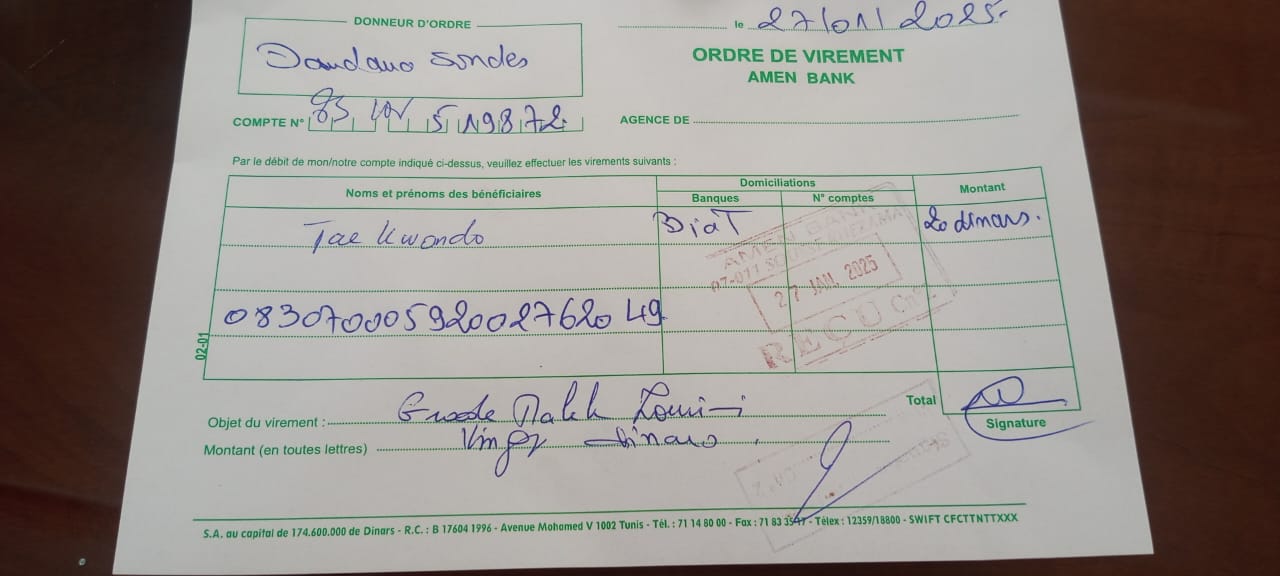 DONNEUR D'ORDRE
le 27/01/2025.
ORDRE DE VIREMENT
AMEN BANK
Sondes
COMPTE N° 519872
AGENCE DE
Par le débit de mon/notre compte indiqué ci-dessus, veuillez effectuer les virements suivants :
Noms et prénoms des bénéficiaires
Domiciliations
Banques
N° comptes
Montant
Tae Kwondo
BiaT
20 dinars.
AMEN BANK
27 JAN. 2025
RECU
08307000592002762049
02-01
Objet du virement : Malek
Total
Signature
Montant (en toutes lettres) Vingt dinars
S.A. au capital de 174.600.000 de Dinars - R.C. : B 17604 1996 - Avenue Mohamed V 1002 Tunis - Tél. : 71 14 80 00 - Fax : 71 83 - Télex : 12359/18800 - SWIFT CFCTTNTTXXX